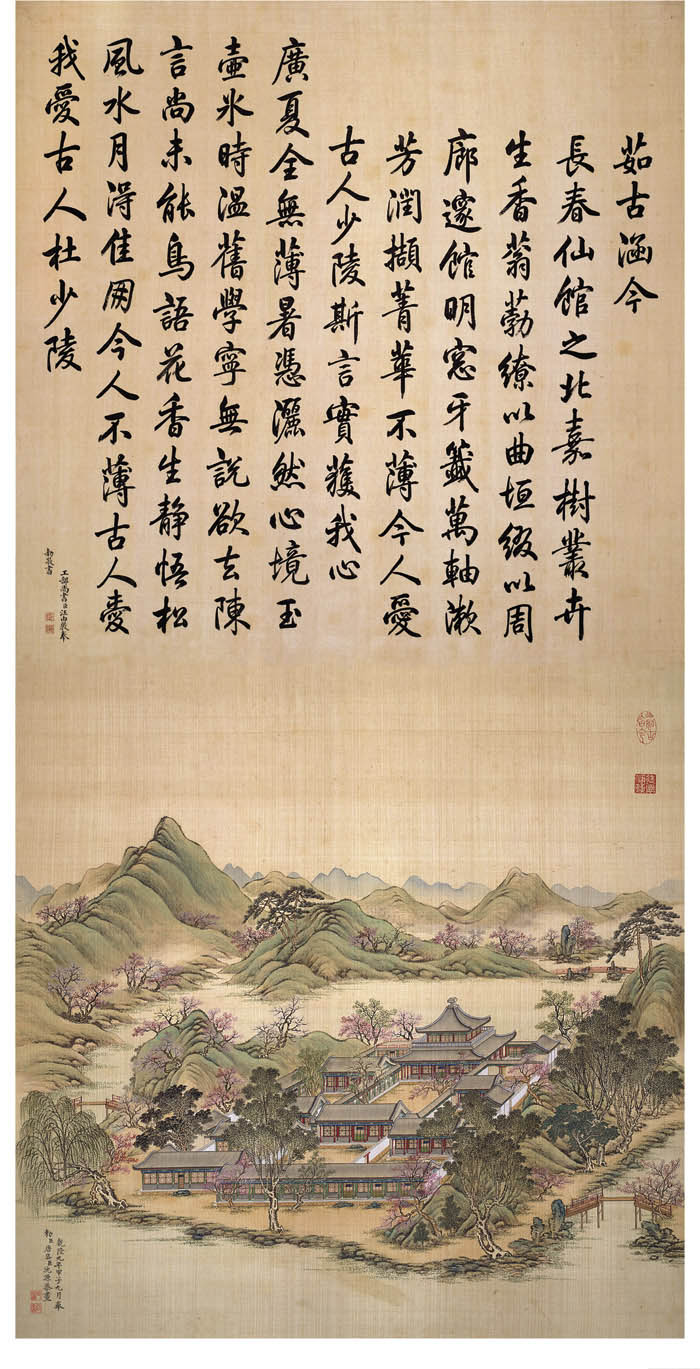 茹古涵今
長春仙館之北嘉樹叢卉
生香蓊葧繚以曲垣綴以周
廊邃館明窻牙籤萬軸漱
芳潤擷菁華不薄今人愛
古人少陵斯言實獲我心
廣夏全無薄暑憑灑然心境玉
壺氷時溫舊學寧無說欲去陳
言尚未能鳥語花香生静悟松
風水月淂佳朋今人不薄古人愛
我愛古人杜少陵
工部尚書臣汪由敦奉
勅敬書
乾隆九年甲子九月奉
勅臣唐岱臣沈源恭畫